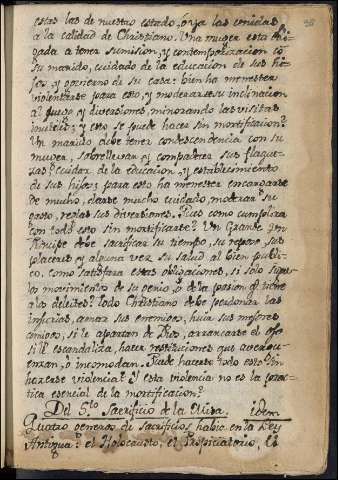 estas las de nuestro estado, o ya las venidas
a la calidad de Christiano. Una muger esta obli-
gada a tener sumision, y contemporizacion cõ
su marido, cuidado de la educacion de sus hi-
jos, y govierno de su casa: bien ha menester
violentarse para esto, y moderar su inclinacion
al juego y diversiones, minorando las visitas
inutiles; y esto se puede hacer sin mortificacion?
Un marido debe tener condescendencia con su
muger, sobrellevar, y compadecer sus flaque-
zas? cuidar de la educacion, y establecimiento
de sus hijos; y para esto ha menester encargarse
de mucho, darse mucho cuidado, moderar su
gasto, reglar sus diversiones. Pues como cumplira
con todo esto sin mortificarse? Un Grande, un
Principe debe sacrificar su tiempo, su reposo, sus
placeres y alguna vez su salud al bien publi-
co. como satisfara estas obligaciones, si solo sigue
los movimientos de su genio, o de la pasion q tiene
a los deleites? Todo Christiano debe perdonar las
injurias, amar sus enemigos, huir sus mejores
amigos, si le apartan de Dios, arrancarse el ojo
si le escandaliza, hacer restituciones que avergu-
enzan, o incomodan. Puede hacerse todo esto sin
hacerse violencia? Y esta violencia no es la prac-
tica esencial de la mortificacion?
Del Sto Sacrificio de la Missa. idem
Quatro generos de Sacrificios habia en la Ley
Antigua: el Holocausto, el Propiciatorio, el